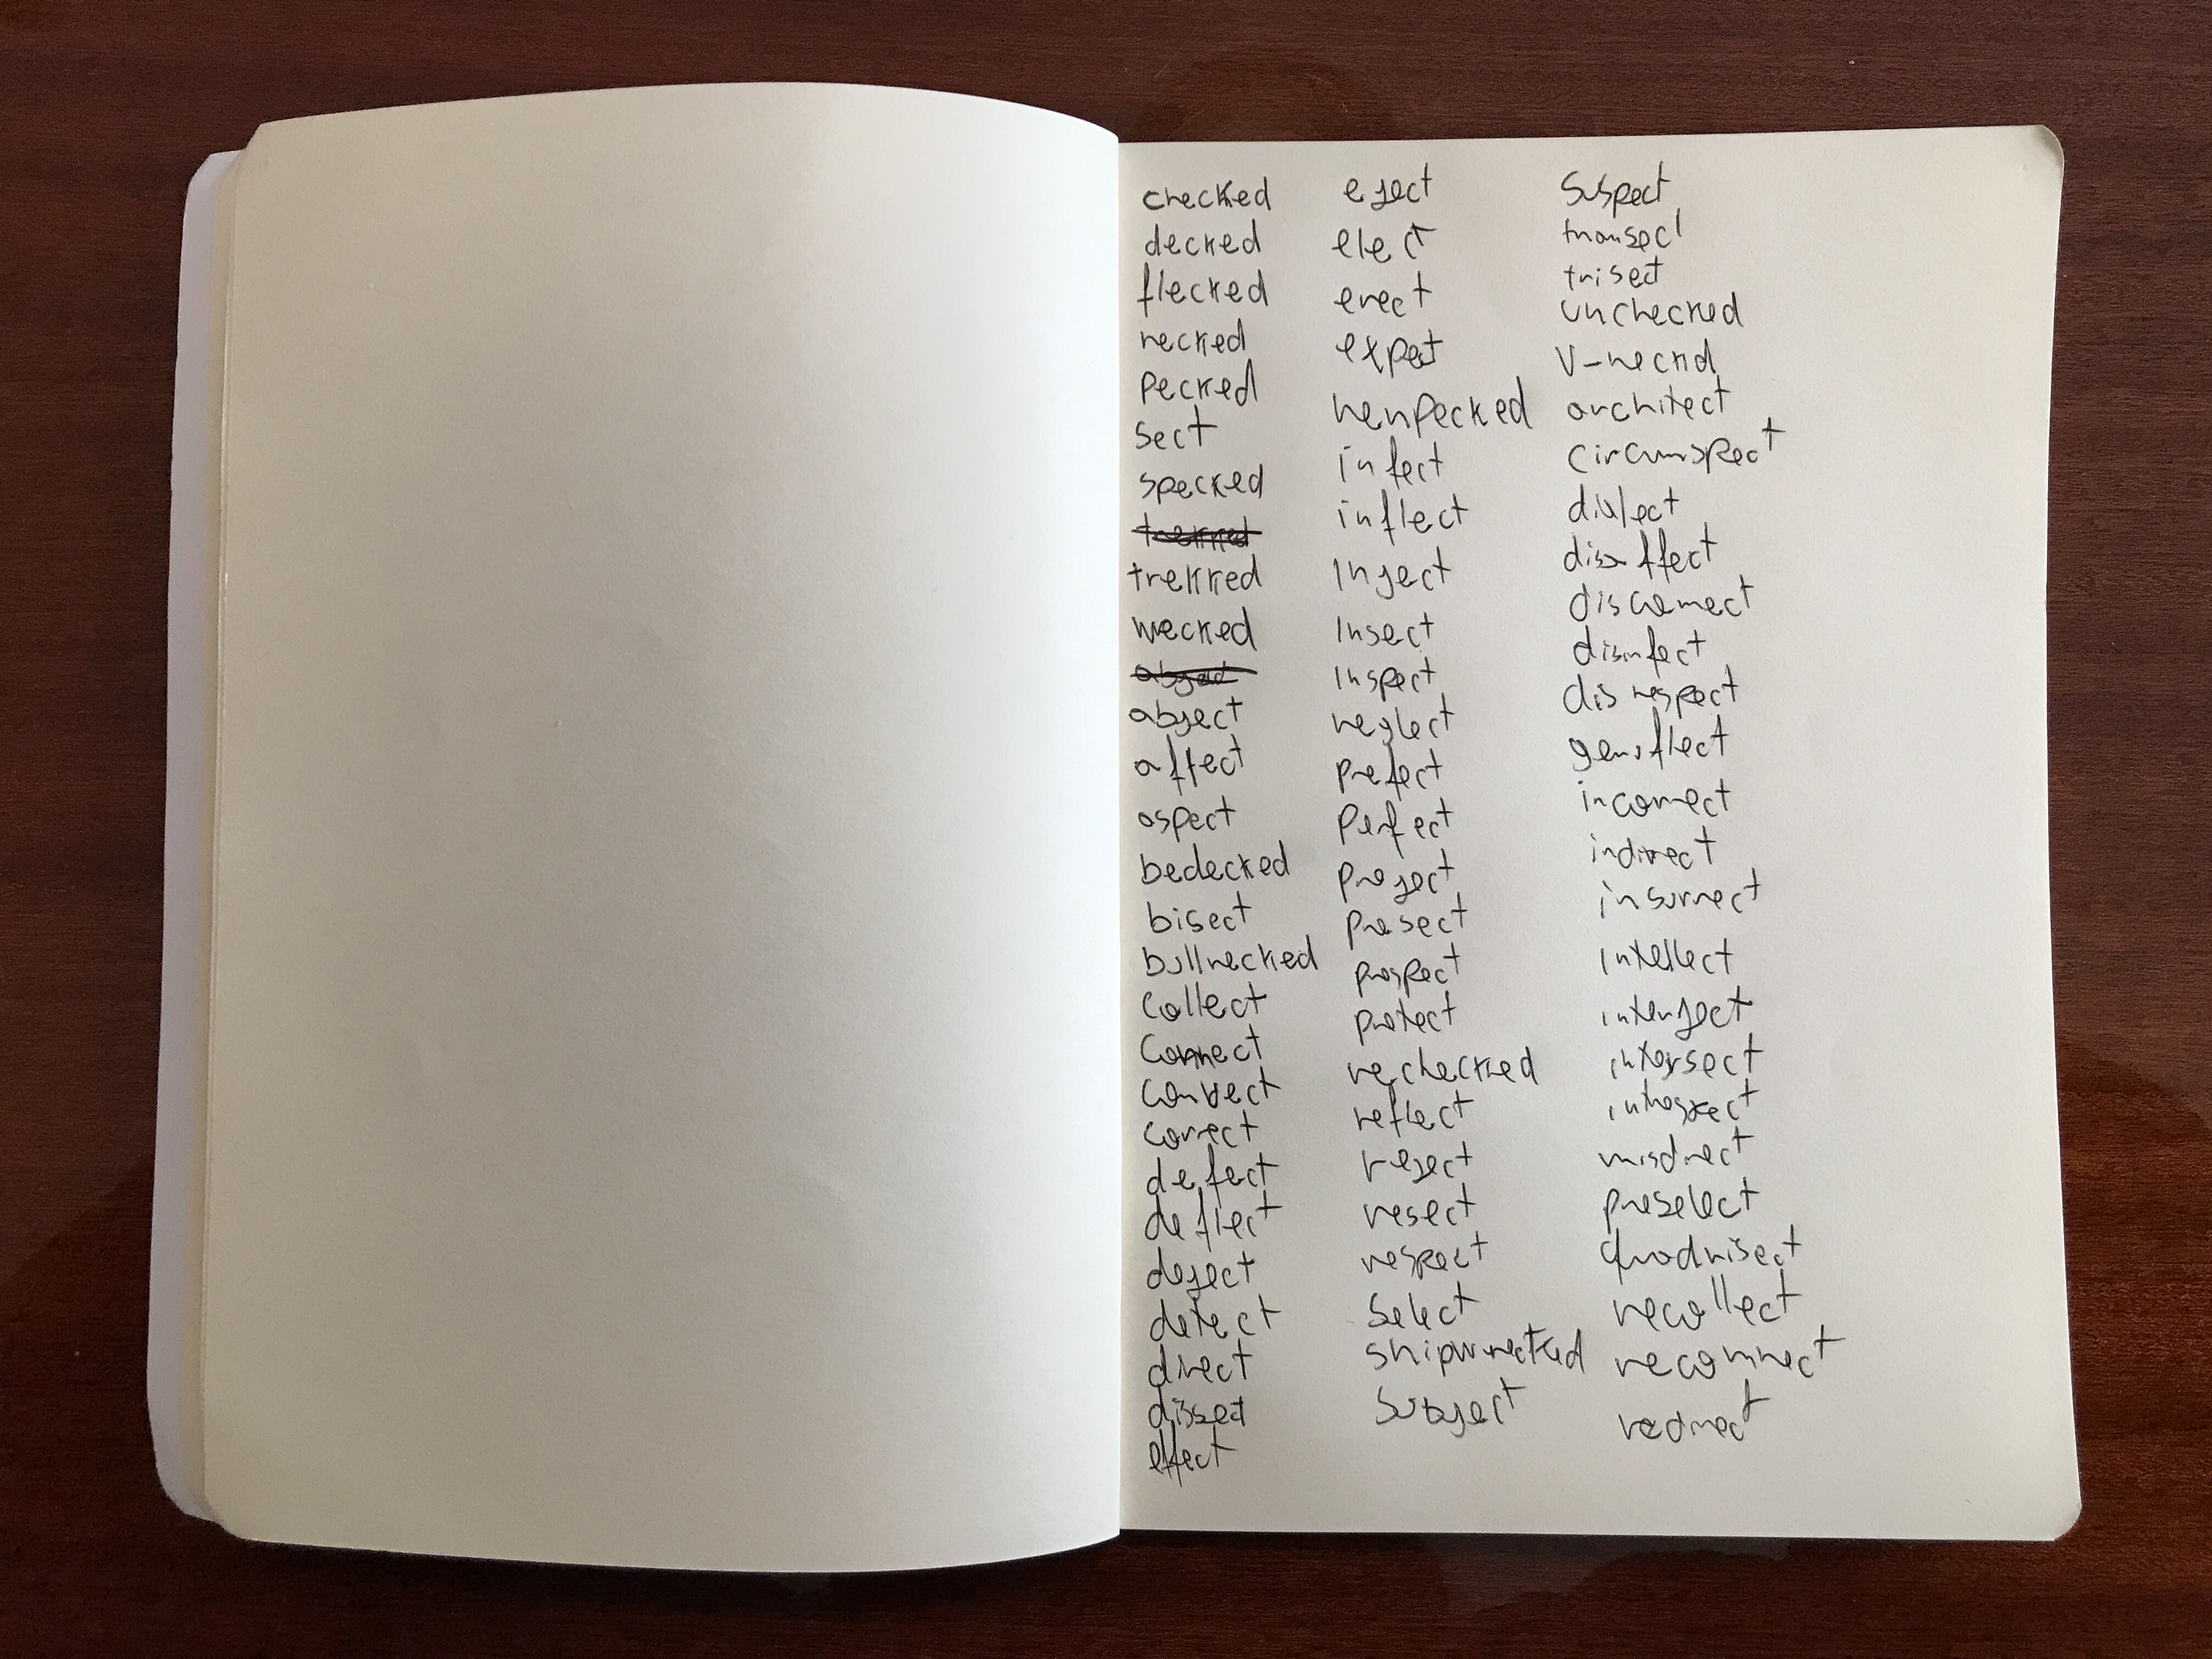 checked
decked
flecked
necked
pecked
sect
specked
trekked
wrecked
abject
affect
aspect
bedecked
bisect
bullnecked
collect
connect
convect
correct
defect
deflect
deject
detect
direct
dissect
effect
eject
elect
erect
expect
henpecked
infect
inflect
inject
insect
inspect
neglect
prefect
perfect
project
prosect
prospect
protect
rechecked
reflect
reject
resect
respect
select
shipwrecked
subject
suspect
transect
trisect
unchecked
v-necked
architect
circumspect
dialect
disaffect
disconnect
disinfect
disrespect
genuflect
incorrect
indirect
insurrect
intellect
interject
intersect
introspect
misdirect
preselect
quadrisect
recollect
reconnect
redirect